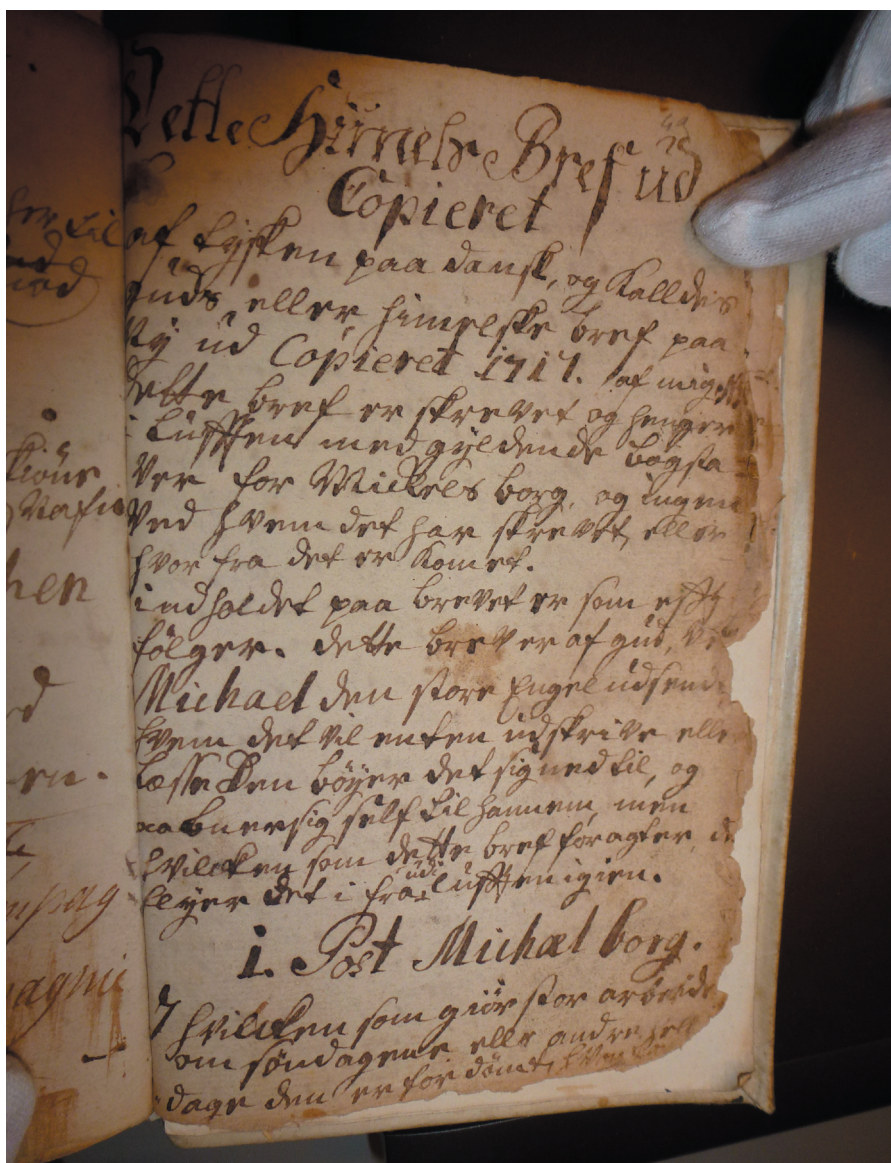 Dette Himels Bref ud
Copieret
af tysken paa dansk, og Kalldes
guds eller himelske bref paa
ny ud Copieret 1717. af mig
dette bref er skrevet og henger
i Lufften med gyldende bogsta
ver for Mickels borg, og ingen
ved hvem det har skrevet, eller
hvor fra det er komet.
indholdet paa brevet er som
følger. dette brev er af gud, ved
Michael den store Engel udsend
hvem det vil enten udskrive elle
læsse den bøyer det sig ned til, og
aabner sig self til hannem, men
hvilcken som dette bref foragter, da
flyer det i fra udi lufften igien.
1. Post Michael borg.
7 hvilcken som giør stor arbeide
om søndagene ellr andre hell
dage den er for dømt,
her til
kiöns
Nafn
hen
en.